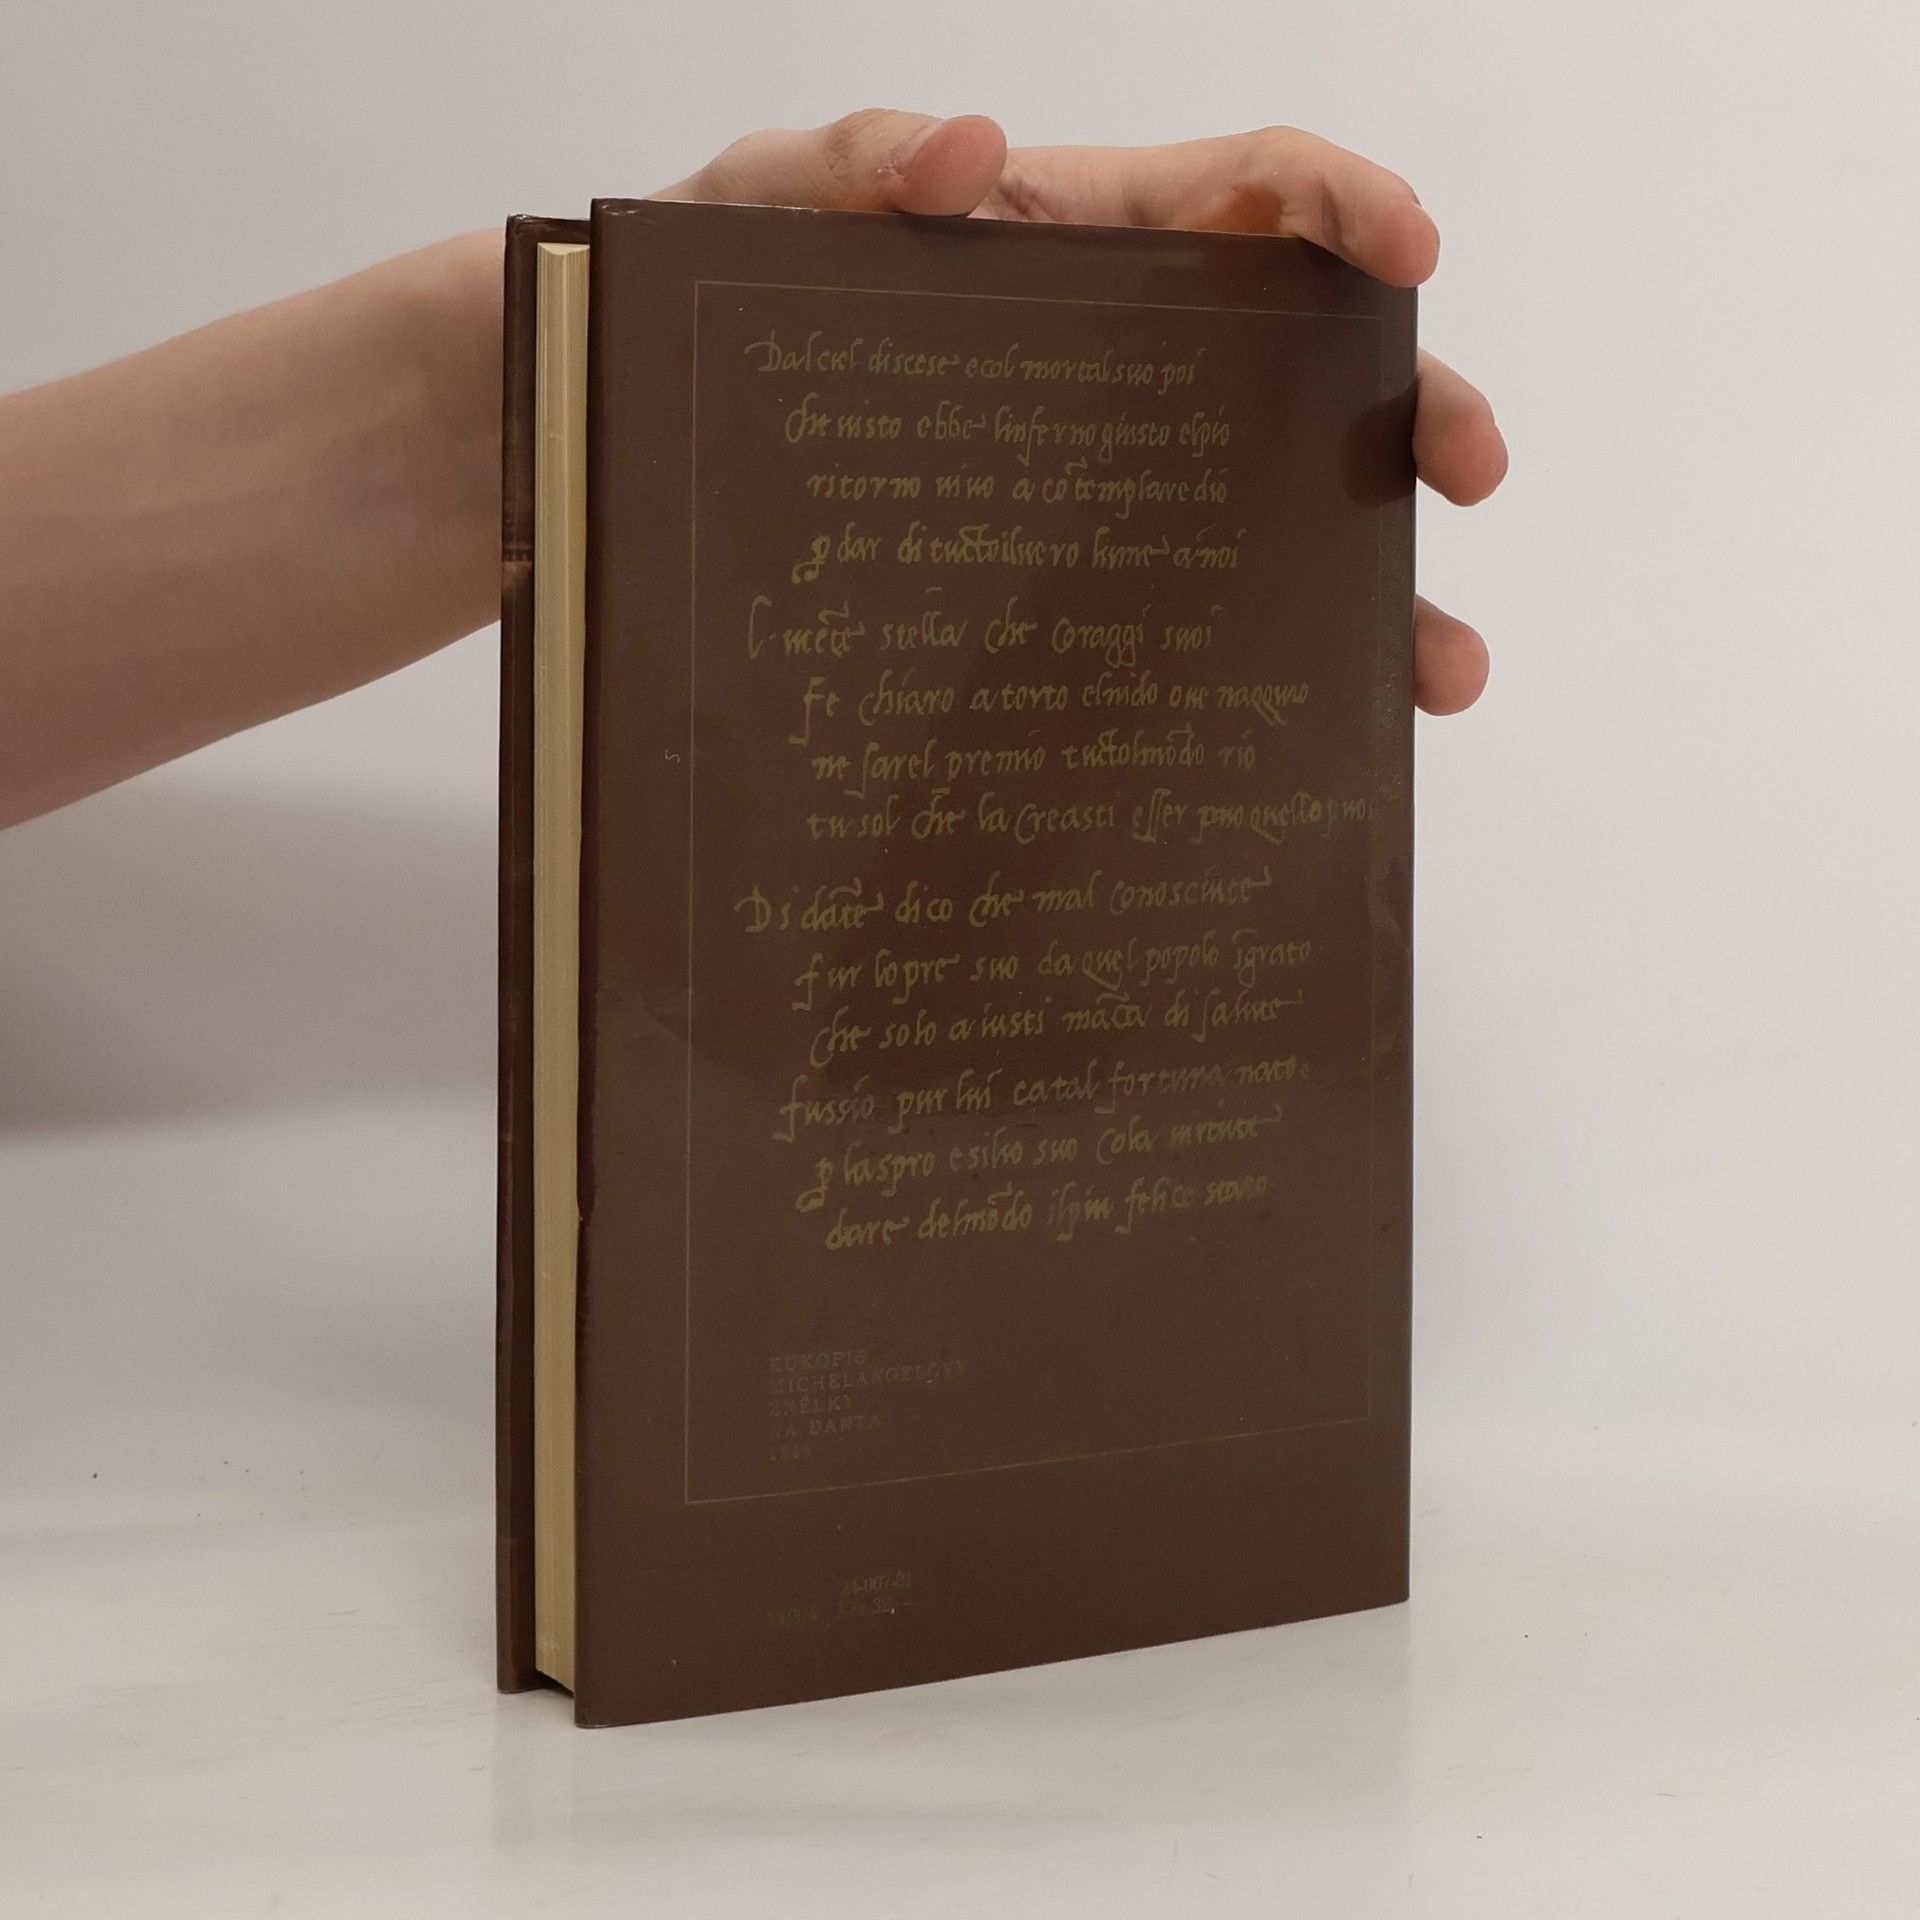 Dal ciel discese e col mortal suo poi
che uisto ebbe linferno giusto elpio
ritorno uiuo a cōtemplare dio
p dar di tucto iluero lume a noi
l.mcētē stella che coraggi suoi
fe chiaro a torto elnido oue nacquio
ne sarel premio tuctolmōdo rio
tu sol che la creasti esser puo quello puoi
Di dāte dico che mal conosciute
fur lopre suo da quel popolo īgrato
che solo a iusti māca di salute
fussio pur lui catal fortuna nato.
p laspro esilio suo cola uirtute
dare delmōdo ilpiu felice stato
RUKOPIS
MICHELANGELOVY
ZNĚLKY
NA DANTA
24-007-81
Kčs 32,—